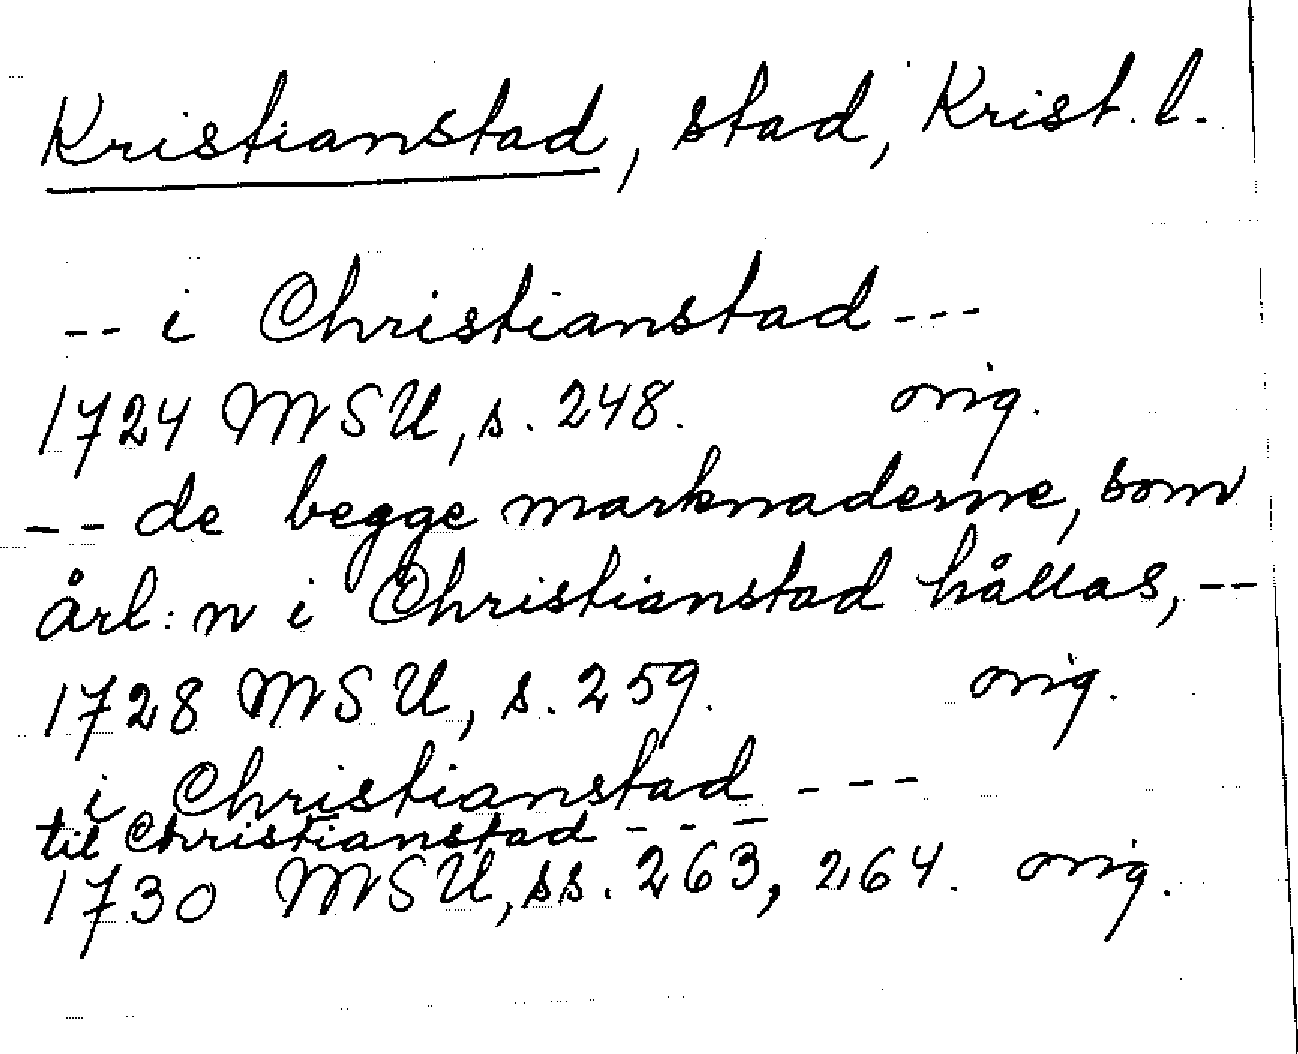 Kristianstad, stad, Krist. l.
-- i Christianstad ---
1724 MSU, s. 248. orig.
-- de begge marknaderne, som
årl:n i Christianstad hållas, --
1728 MSU, s. 259. orig.
i Christianstad ---
til Christianstad ---
1730 MSU, ss. 263, 264. orig.